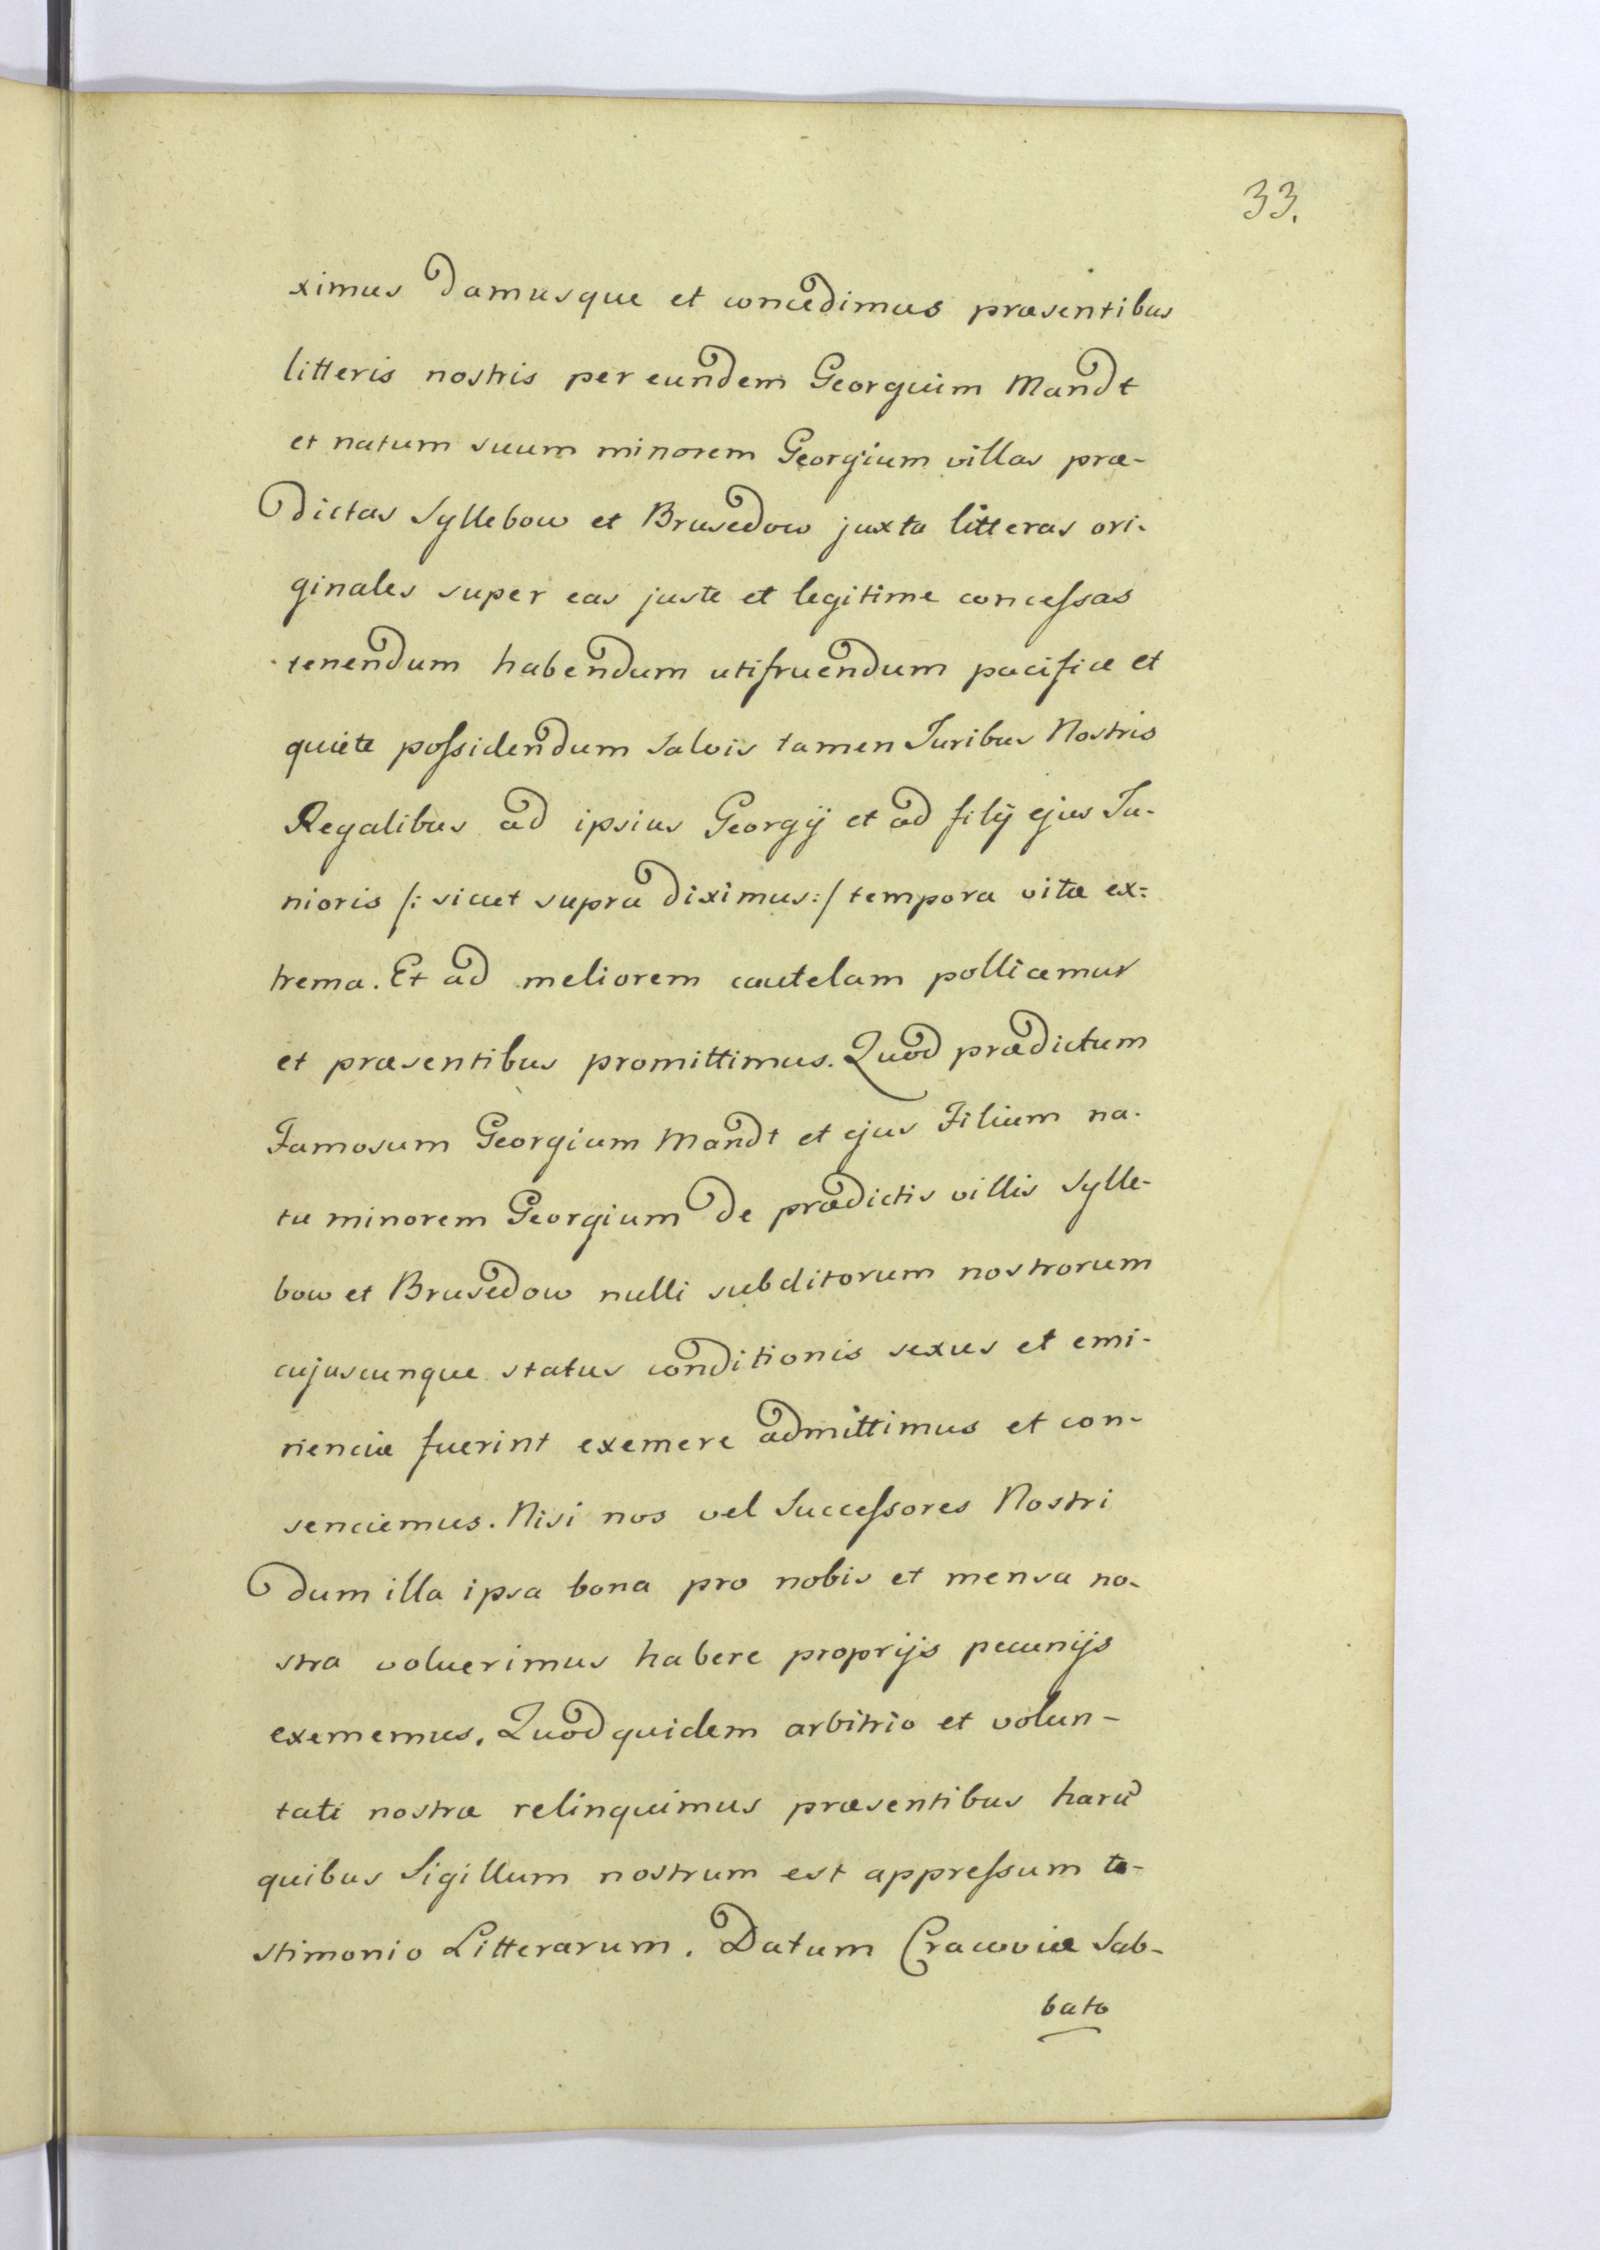 33.
ximus damusque et concedimus præsentibus
litteris nostris per eundem Georguim Mandt
et natum suum minorem Georgium villas præ-
dictas Syllebow et Brusedow juxta litteras ori-
ginales super eas juste et legitime concessas
tenendum habendum utifruendum pacifice et
quiete possidendum Salvis tamen Juribus Nostris
Regalibus ad ipsius Georgÿ et ad filÿ ejus Ju-
nioris /: sicut supra diximus:/ tempora vitæ ex=
trema. Et ad meliorem cautelam pollicemur
et præsentibus promittimus. Quod prædictum
Famosum Georgium Mandt et ejus Filium na-
tu minorem Georgium de prædictis villis Sylle-
bow et Brusedow nulli subditorum nostrorum
cujuscunque status conditionis sexus et emi-
nenciæ fuerint exemere admittimus et con-
senciemus. Nisi nos vel Successores Nostri
dum illa ipsa bona pro nobis et mensa no-
stra voluerimus habere proprijs pecunijs
exememus. Quod quidem arbitrio et volun-
tati nostræ relinquimus præsentibus harũ
quibus Sigillum nostrum est appressum te-
stimonio Litterarum. Datum Cracoviæ Sab-
bato